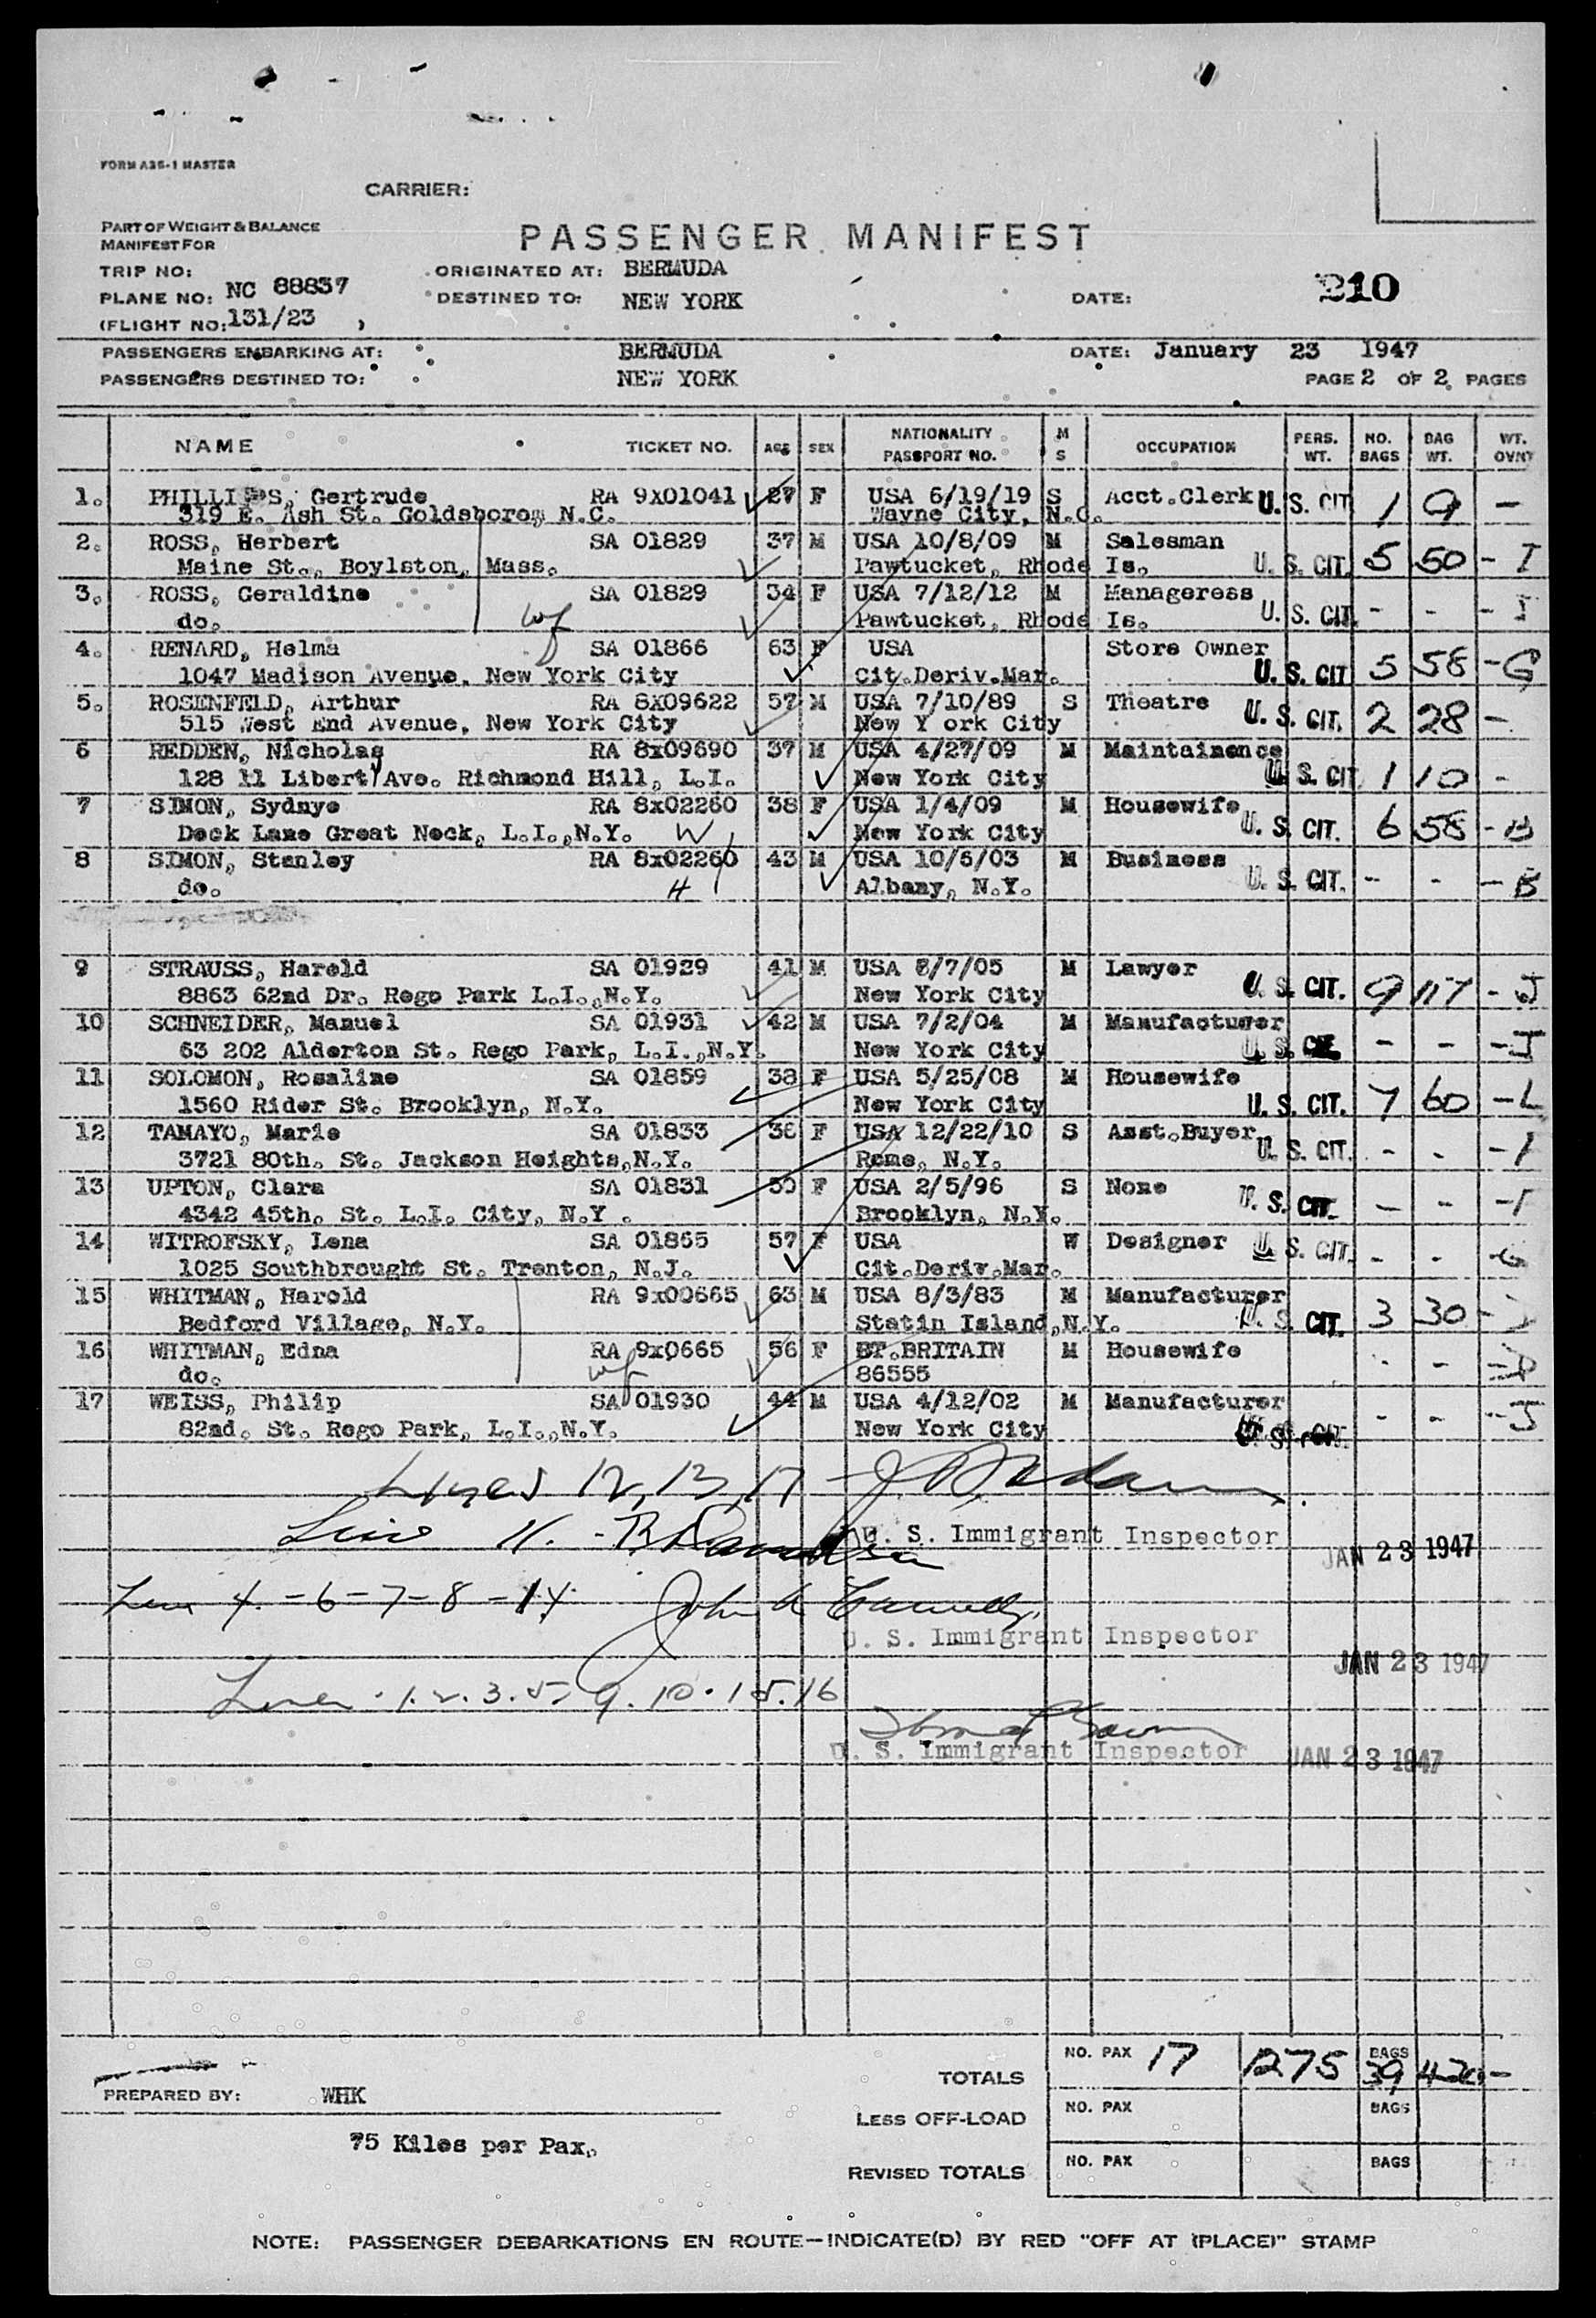 FORM A35-1 MASTER
CARRIER:
PART OF WEIGHT & BALANCE
MANIFEST FOR
PASSENGER MANIFEST
TRIP NO:
ORIGINATED AT: BERMUDA
PLANE NO: NC 88837
DESTINED TO: NEW YORK
DATE:
210
(FLIGHT NO: 131/23 )
PASSENGERS EMBARKING AT: BERMUDA DATE: January 23 1947
PASSENGERS DESTINED TO: NEW YORK PAGE 2 OF 2 PAGES
NAME TICKET NO. AGE SEX NATIONALITY PASSPORT NO. M S OCCUPATION PERS. WT. NO. BAGS BAG WT. WT. OVNT
1. PHILLIPS, Gertrude RA 9X01041 27 F USA 6/19/19 S Acct.Clerk U. S. CIT 1 9 -
319 E. Ash St. Goldsboro, N.C. Wayne City, N.C.
2. ROSS, Herbert SA 01829 37 M USA 10/8/09 M Salesman
Maine St., Boylston, Mass. Pawtucket, Rhode Is. U. S. CIT. 5 50 - I
3. ROSS, Geraldine SA 01829 34 F USA 7/12/12 M Manageress
do. wf Pawtucket, Rhode Is. U. S. CIT. - - - I
4. RENARD, Helma SA 01866 63 F USA Store Owner
1047 Madison Avenue, New York City Cit.Deriv.Mar. U. S. CIT 5 58 - G
5. ROSENFELD, Arthur RA 8X09622 57 M USA 7/10/89 S Theatre
515 West End Avenue, New York City New Y ork City U. S. CIT. 2 28 -
6 REDDEN, Nicholas RA 8x09690 37 M USA 4/27/09 M Maintainence
128 11 Liberty Ave. Richmond Hill, L.I. New York City U. S. CIT 1 10 -
7 SIMON, Sydnye RA 8x02260 38 F USA 1/4/09 M Housewife
Deck Lane Great Neck, L.I.,N.Y. W New York City U. S. CIT. 6 58 - B
8 SIMON, Stanley RA 8x02260 43 M USA 10/6/03 M Business
do. H Albany, N.Y. U. S. CIT. - - - B
9 STRAUSS, Harold SA 01929 41 M USA 8/7/05 M Lawyer
8863 62nd Dr. Rego Park L.I.,N.Y. New York City U. S. CIT. 9 117 - J
10 SCHNEIDER, Manuel SA 01931 42 M USA 7/2/04 M Manufacturer
63 202 Alderton St. Rego Park, L.I.,N.Y. New York City U. S. CIT. - - - J
11 SOLOMON, Rosaline SA 01859 38 F USA 5/25/08 M Housewife
1560 Rider St. Brooklyn, N.Y. New York City U. S. CIT. 7 60 - L
12 TAMAYO, Marie SA 01833 36 F USA 12/22/10 S Asst.Buyer
3721 80th. St. Jackson Heights,N.Y. Rome, N.Y. U. S. CIT. - - - I
13 UPTON, Clara SA 01831 50 F USA 2/5/96 S None
4342 45th. St. L.I. City, N.Y . Brooklyn, N.Y. U. S. CIT. - - - I
14 WITROFSKY, Lena SA 01865 57 F USA W Designer U. S. CIT.
1025 Southbrought St. Trenton, N.J. Cit.Deriv.Mar. - - - G
15 WHITMAN, Harold RA 9x00665 63 M USA 8/3/83 M Manufacturer
Bedford Village, N.Y. Statin Island,N.Y. U. S. CIT. 3 30 -
16 WHITMAN, Edna RA 9x0665 56 F BT.BRITAIN M Housewife
do. wf 86555 - - - D
17 WEISS, Philip SA 01930 44 M USA 4/12/02 M Manufacturer
82nd. St. Rego Park, L.I.,N.Y. New York City U. S. CIT. - - - J
Lines 12, 13, 17 -
Line 11. -
U. S. Immigrant Inspector JAN 23 1947
Line 4. - 6 - 7 - 8 - 14 John
U. S. Immigrant Inspector
JAN 23 1947
Lines . 1. 2. 3. 5. 9. 10. 15. 16
U. S. Immigrant Inspector JAN 23 1947
TOTALS NO. PAX 17 1275 BAGS 39 420 -
PREPARED BY: WHK
LESS OFF-LOAD NO. PAX BAGS
75 Kilos per Pax.
REVISED TOTALS NO. PAX BAGS
NOTE: PASSENGER DEBARKATIONS EN ROUTE—INDICATE(D) BY RED "OFF AT (PLACE)" STAMP